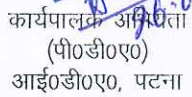 कार्यपालक अभियंता
(पी०डी०ए०)
आई०डी०ए०, पटना